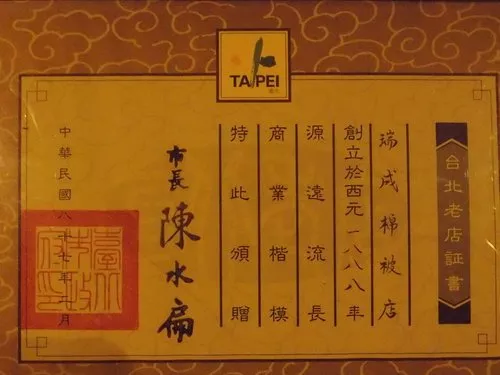 TAIPEI
台北老店証書
瑞成棉被店
創立於西元一八八八年
源遠流長
商業楷模
特此頒贈
市長 陳水扁
中華民國八十七年 月